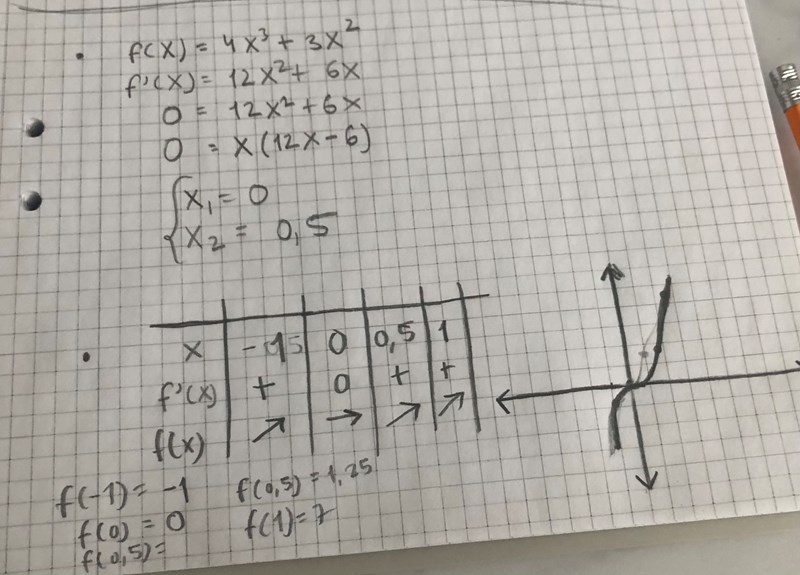 f(x) = 4x³ + 3x²
f'(x) = 12x² + 6x
0 = 12x² + 6x
0 = x(12x - 6)
x₁ = 0
x₂ = 0,5
x 0 0,5 1
f'(x) + 0 + +
f(x) ↗ → ↗ ↗
f(-1) = -1 f(0,5) = 1,25
f(0) = 0 f(1) = 7
f(0,5) =